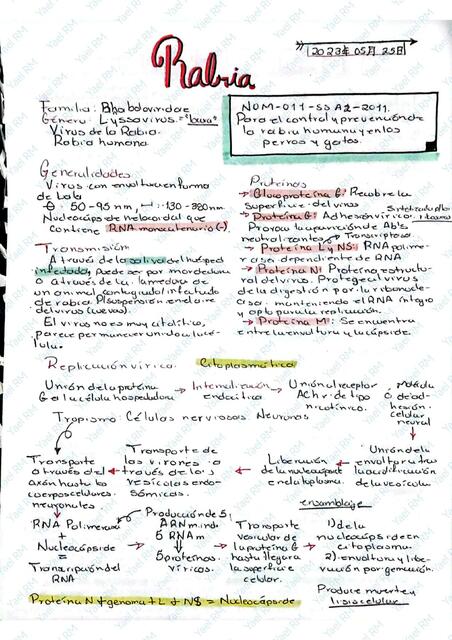 2023年 05月 25日
Rabia
Familia: Rhabdoviridae
Género: Lyssavirus
Virus de la Rabia.
Rabia humana
NOM-011-SSA2-2011.
Para el control y prevención de
la rabia humana y en los
perros y gatos.
Generalidades
Virus con envoltura en forma
de bala
50-95 nm, 130-380nm
Nucleocápside helacoidal que
contiene RNA monocatenario (-)
Proteínas
→ Glucoproteína G: Recubre la
superficie del virus
→ Proteína G: Adhesión vírica
Provoca la aparición de Ab's
neutralizantes
Transcriptasa
→ Proteína L y NS: RNA polime-
rasa dependiente de RNA
→ Proteína N: Proteína estructu-
ral del virus. Protege al virus
de la digestión por la ribonucle-
asa: manteniendo el RNA íntegro
y apto para la replicación.
→ Proteína M: Se encuentra
entre la envoltura y la cápside.
Transmisión
A través de la saliva del huésped
infectado, puede ser por mordedura
o a través de la lamedura de
un animal contagiado/infectado
de rabia. P/suspensión en el aire
del virus (cuevas).
El virus no es muy citolítico,
parece permanecer unido a la cé-
lula.
Replicación vírica: Citoplasmática
Unión de la proteína
G a la célula hospedadora
→ Internalización
endocítica
Unión al receptor
AChr de tipo
nicotínico.
Molécula
de ad-
hesión
celular
neural
Tropismo: Células nerviosas Neuronas
Unión de la
envoltura tras
la acidificación
de la vesícula
Liberación
de la nucleocápside
en citoplasma.
Transporte de
los viriones a
través de las
vesículas endo-
sómicas.
Transporte
a través del
axón hasta los
cuerpos celulares
neuronales
RNA Polimerasa
+
Nucleocápside
=
Transcripción del
RNA
Producción de 5
ARN m. ind.
5 RNAm
5 proteínas
víricas.
Transporte
vesicular de
la proteína G
hasta llegar a
la superficie
celular.
ensamblaje
1) de la
nucleocápside en
citoplasma.
2) envoltura y libe-
ración por gemación.
Produce muerte y
lisis celular
Proteína N + genoma + L + NS = Nucleocápside
Yael RM